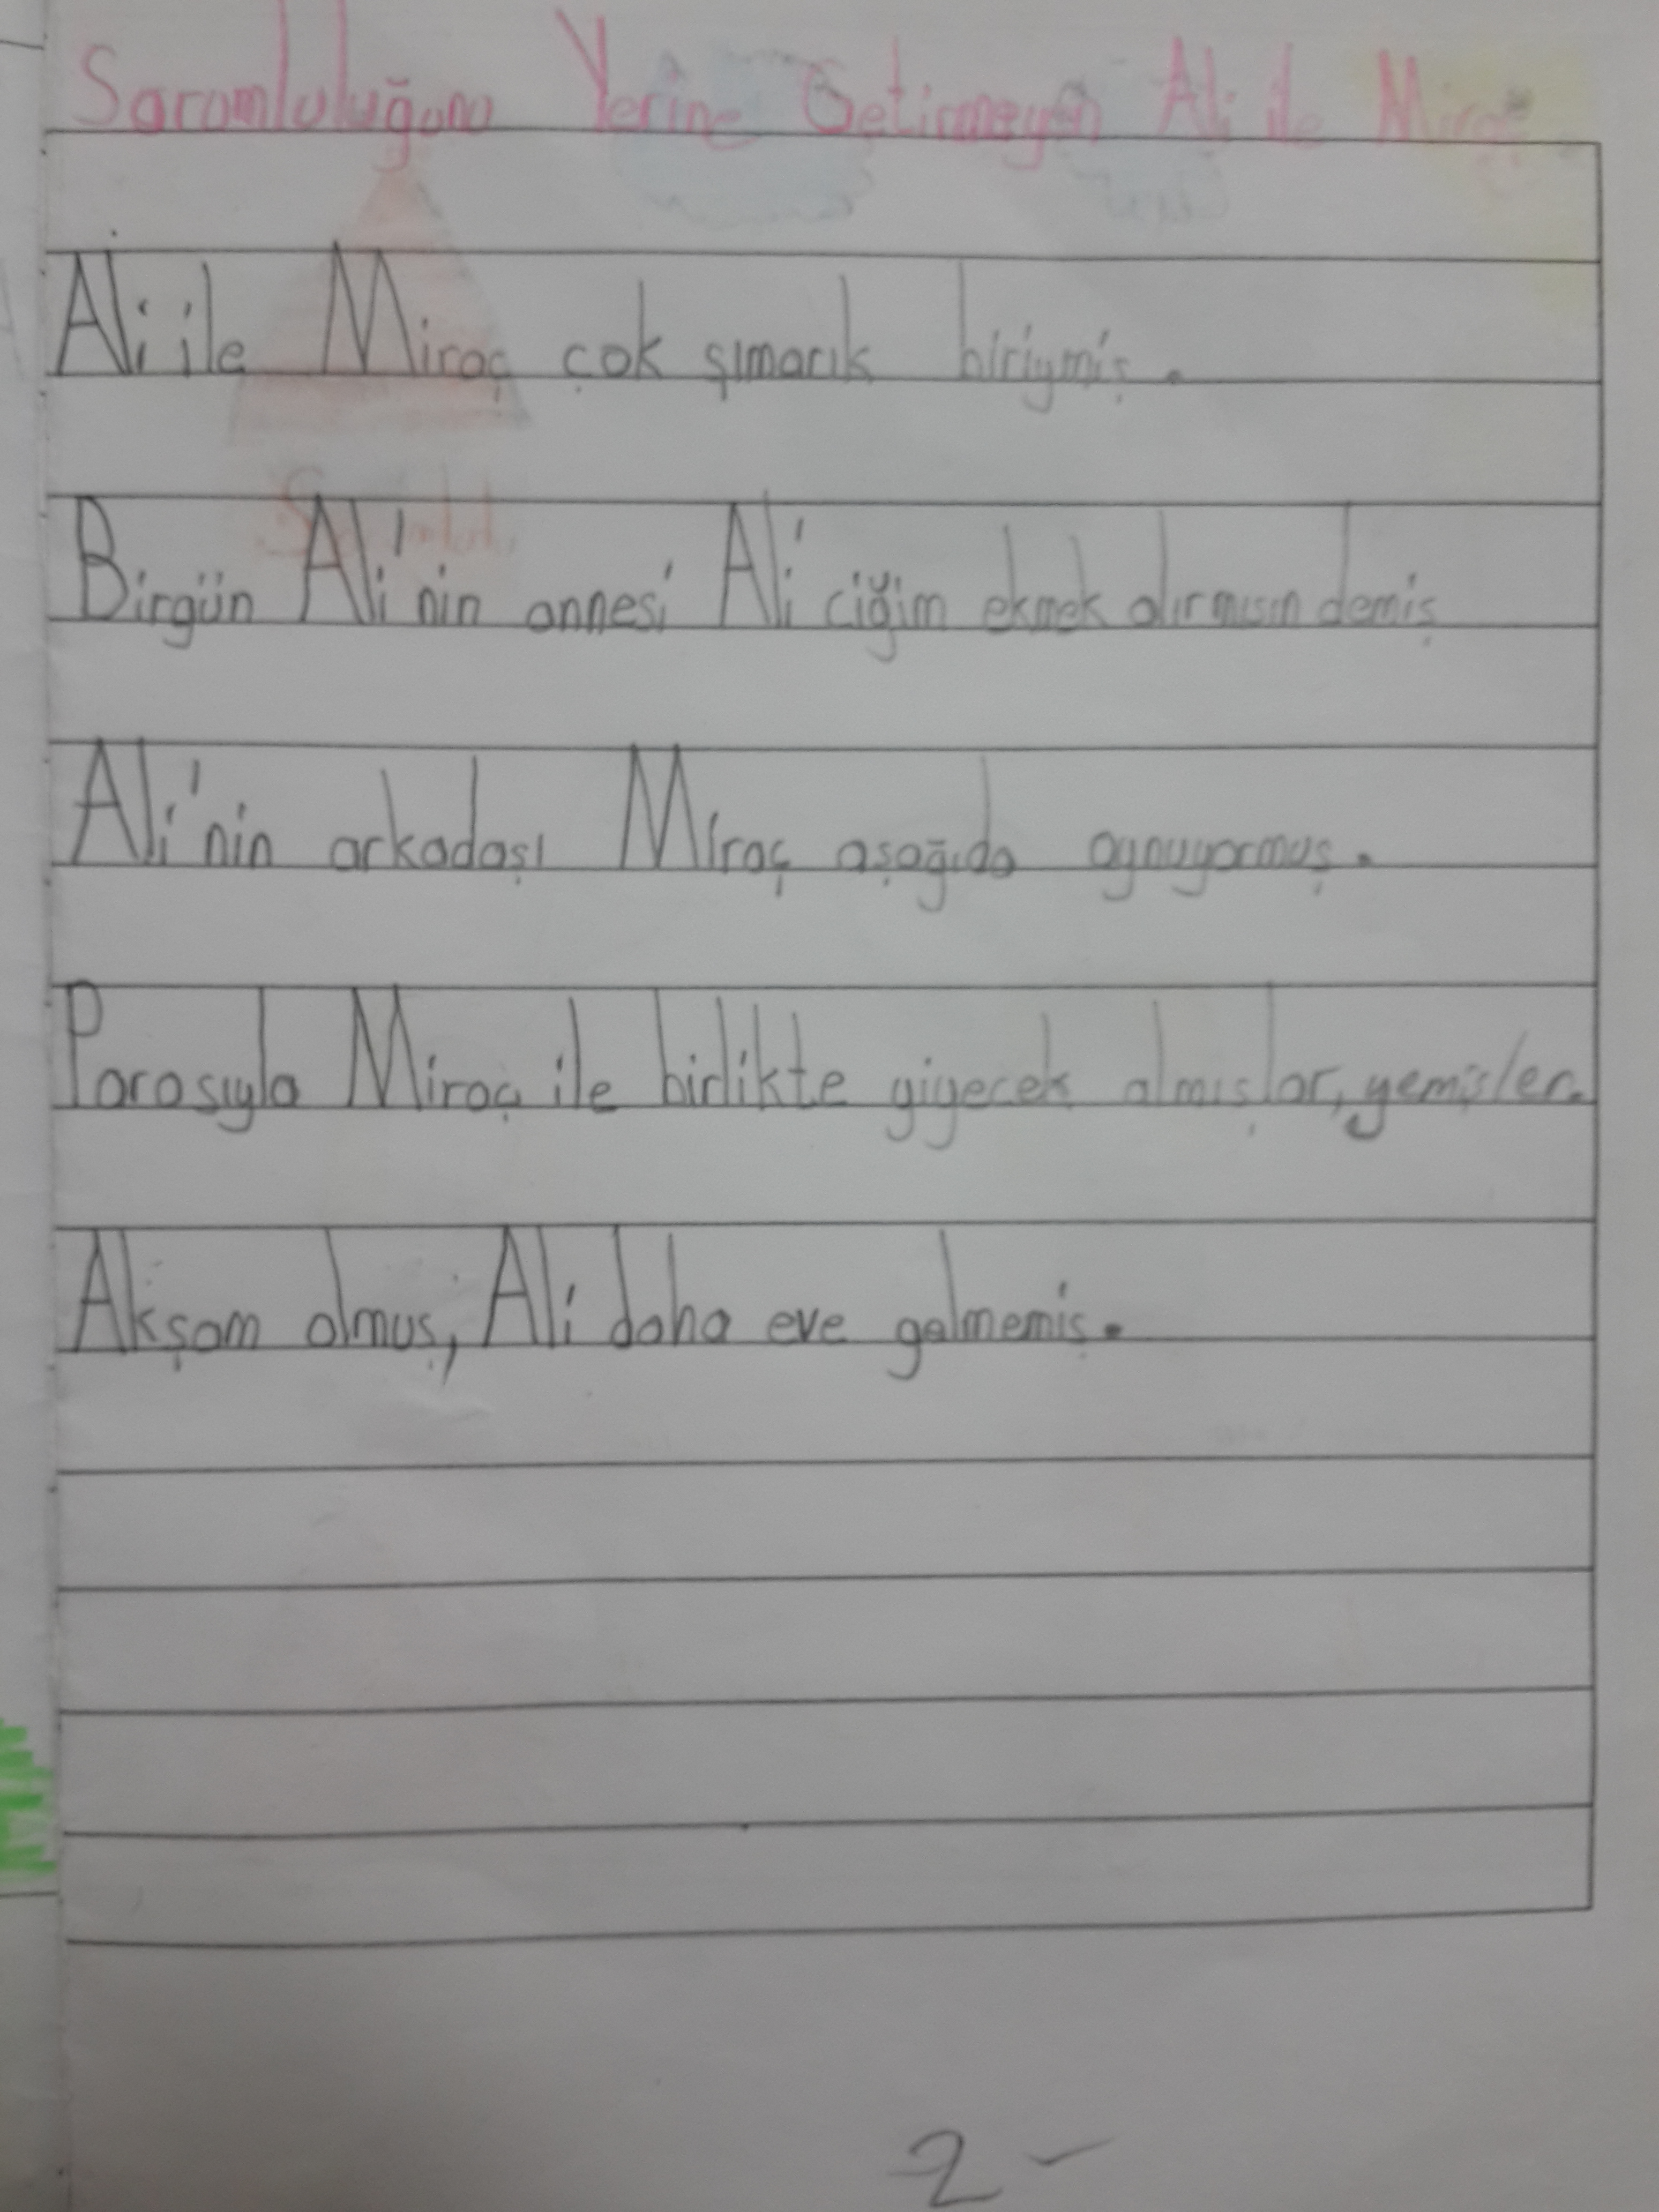 Sorumluluğunu Yerine Getirmeyen Ali ile Miraç
Ali ile Miraç çok şımarık biriymiş.
Birgün Ali'nin annesi Ali'ciğim ekmek alırmısın demiş
Ali'nin arkadaşı Miraç aşağıda oynuyormuş.
Parasıyla Miraç ile birlikte yiyecek almışlar, yemişler.
Akşam olmuş, Ali daha eve gelmemiş.
2-